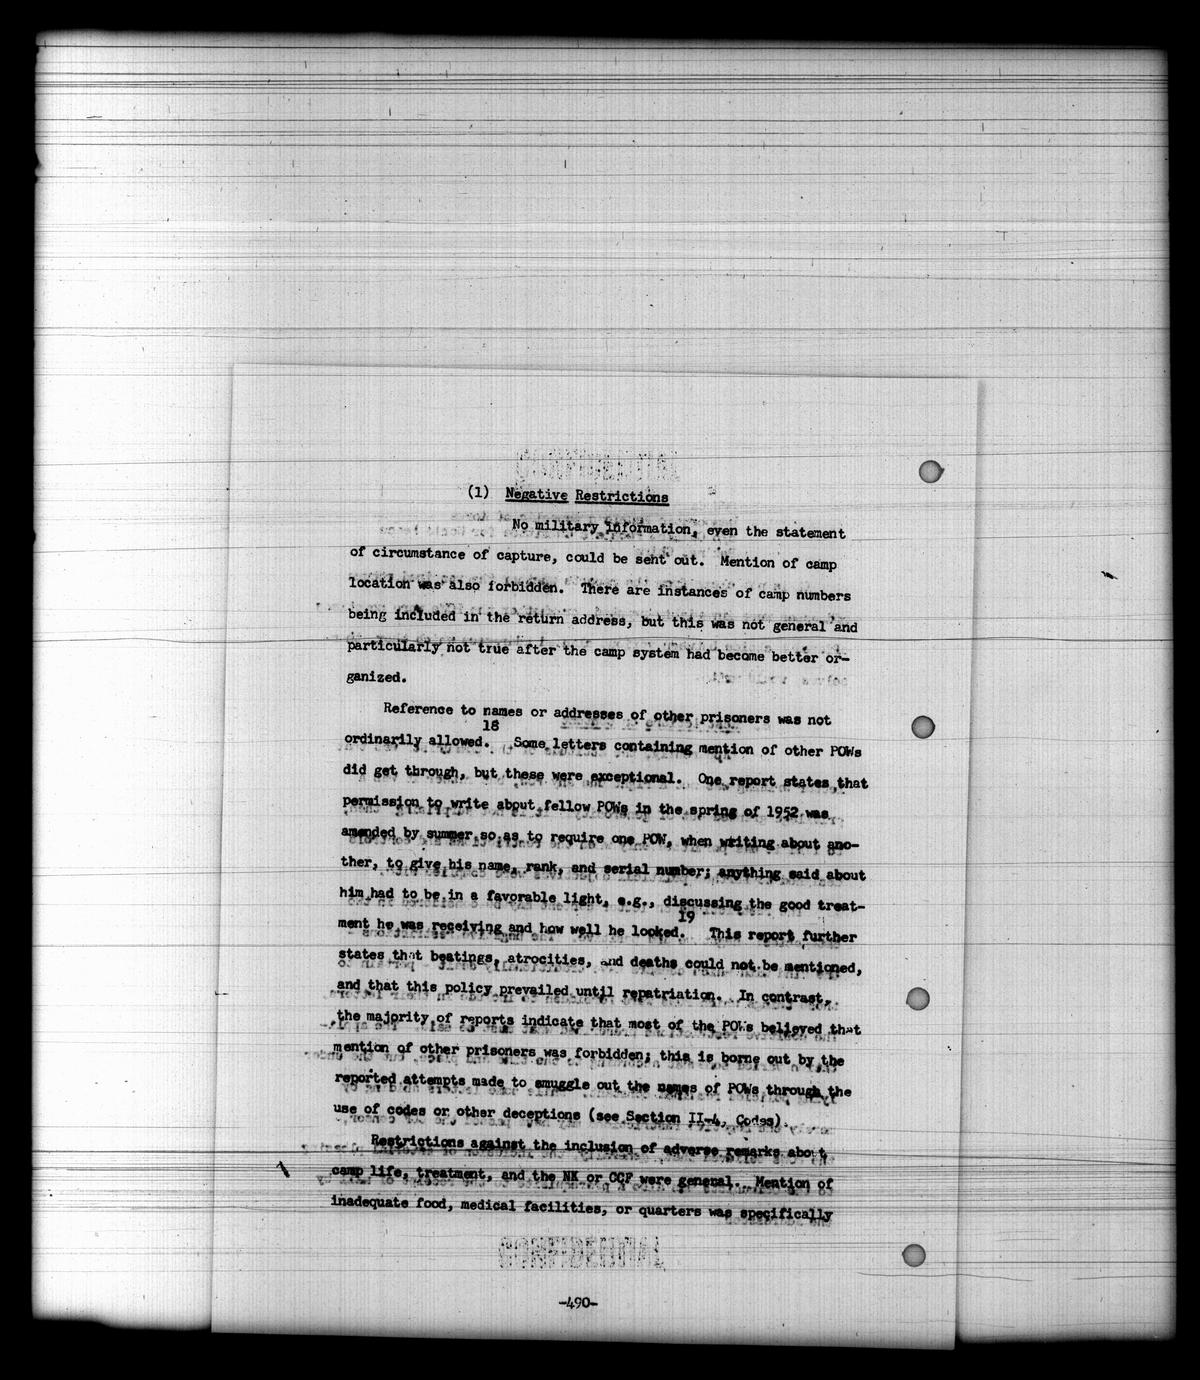 CONFIDENTIAL
(1) Negative Restrictions
No military information, even the statement
of circumstance of capture, could be sent out. Mention of camp
location was also forbidden. There are instances of camp numbers
being included in the return address, but this was not general and
particularly not true after the camp system had become better or-
ganized.
Reference to names or addresses of other prisoners was not
18
ordinarily allowed. Some letters containing mention of other POWs
did get through, but these were exceptional. One report states that
permission to write about fellow POWs in the spring of 1952 was
amended by summer so as to require one POW, when writing about ano-
ther, to give his name, rank, and serial number; anything said about
him had to be in a favorable light, e.g., discussing the good treat-
19
ment he was receiving and how well he looked. This report further
states that beatings, atrocities, and deaths could not be mentioned,
and that this policy prevailed until repatriation. In contrast,
the majority of reports indicate that most of the POWs believed that
mention of other prisoners was forbidden; this is borne out by the
reported attempts made to smuggle out the names of POWs through the
use of codes or other deceptions (see Section II-4, Codes).
Restrictions against the inclusion of adverse remarks about
camp life, treatment, and the NK or CCF were general. Mention of
inadequate food, medical facilities, or quarters was specifically
CONFIDENTIAL
-490-